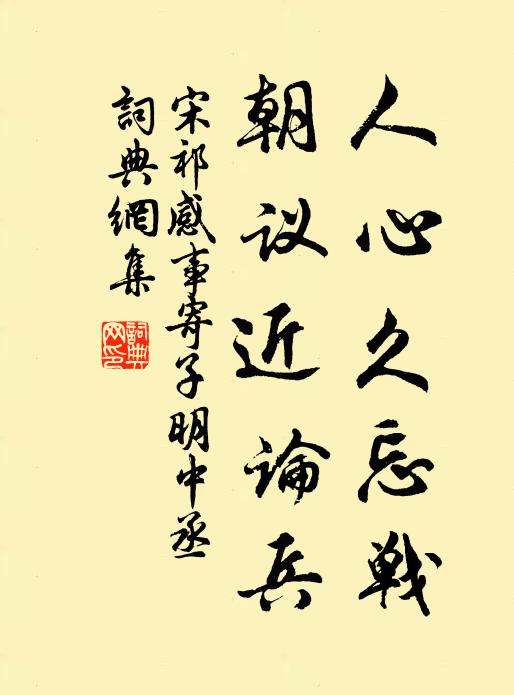 人心久忘戦
朝议近論兵
宋祁感事寄子明中丞
詞典網集
詞典網印